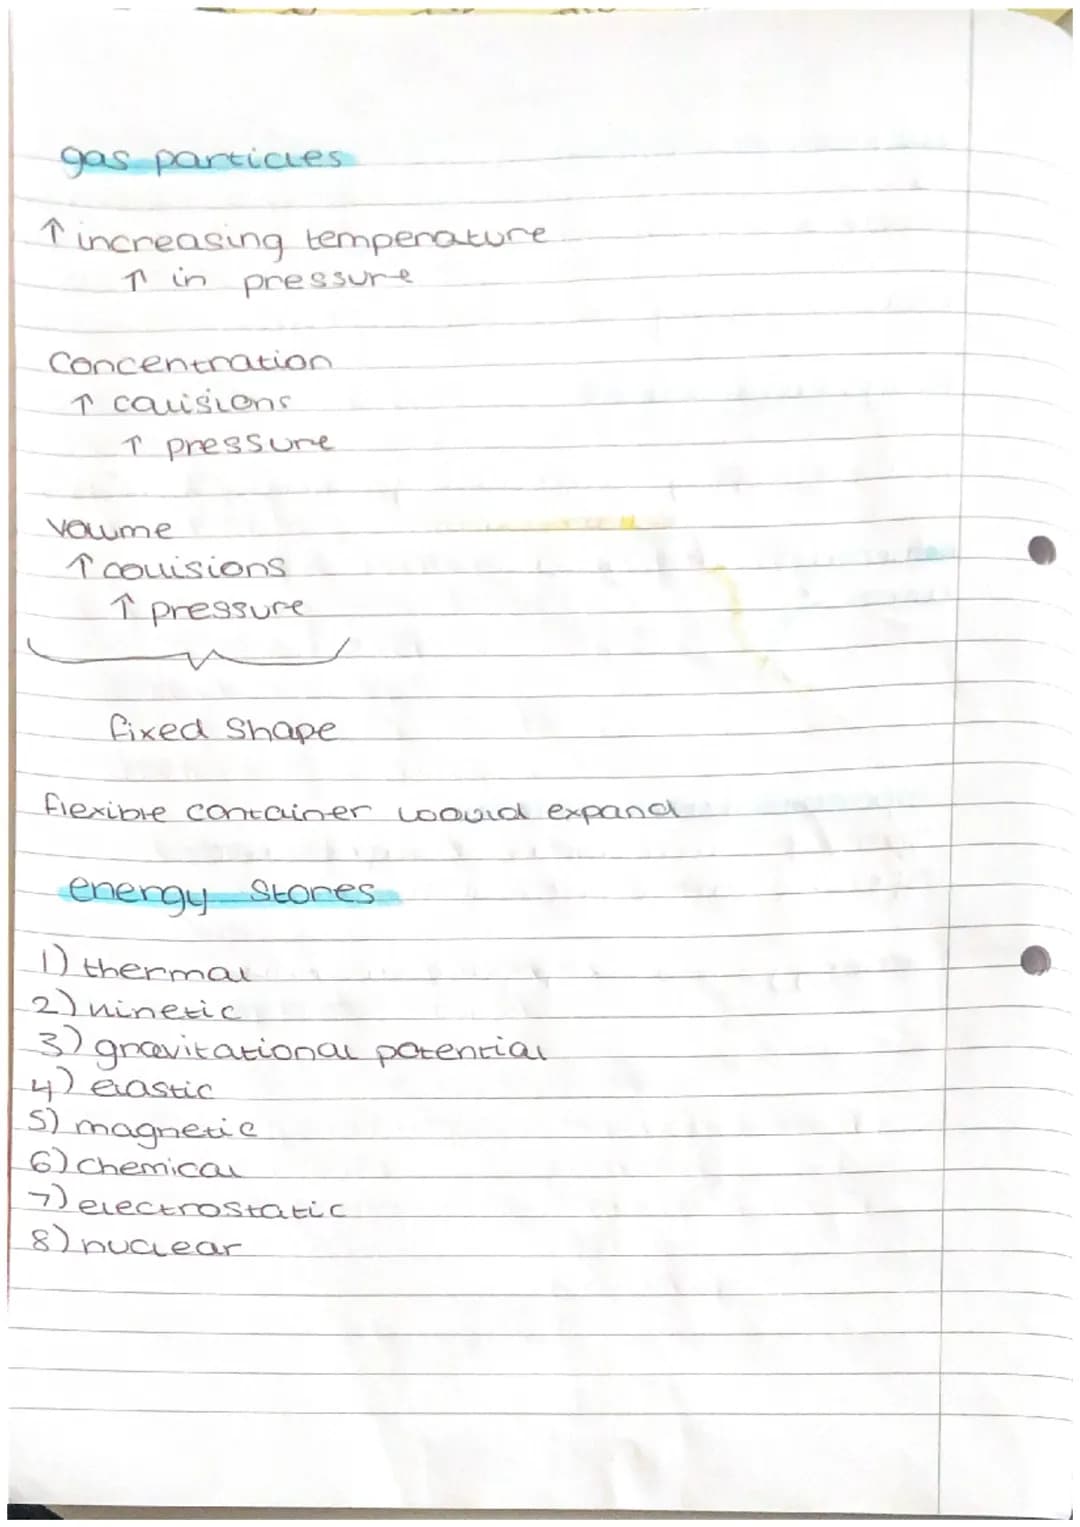 gas particles
↑ increasing temperature
↑ in pressure
Concentration
↑ collisions
↑ pressure
Volume
↑ collisions
↑ pressure
fixed shape
flexible container would expand
energy stores
1) thermal
2) kinetic
3) gravitational potential
4) elastic
5) magnetic
6) chemical
7) electrostatic
8) nuclear